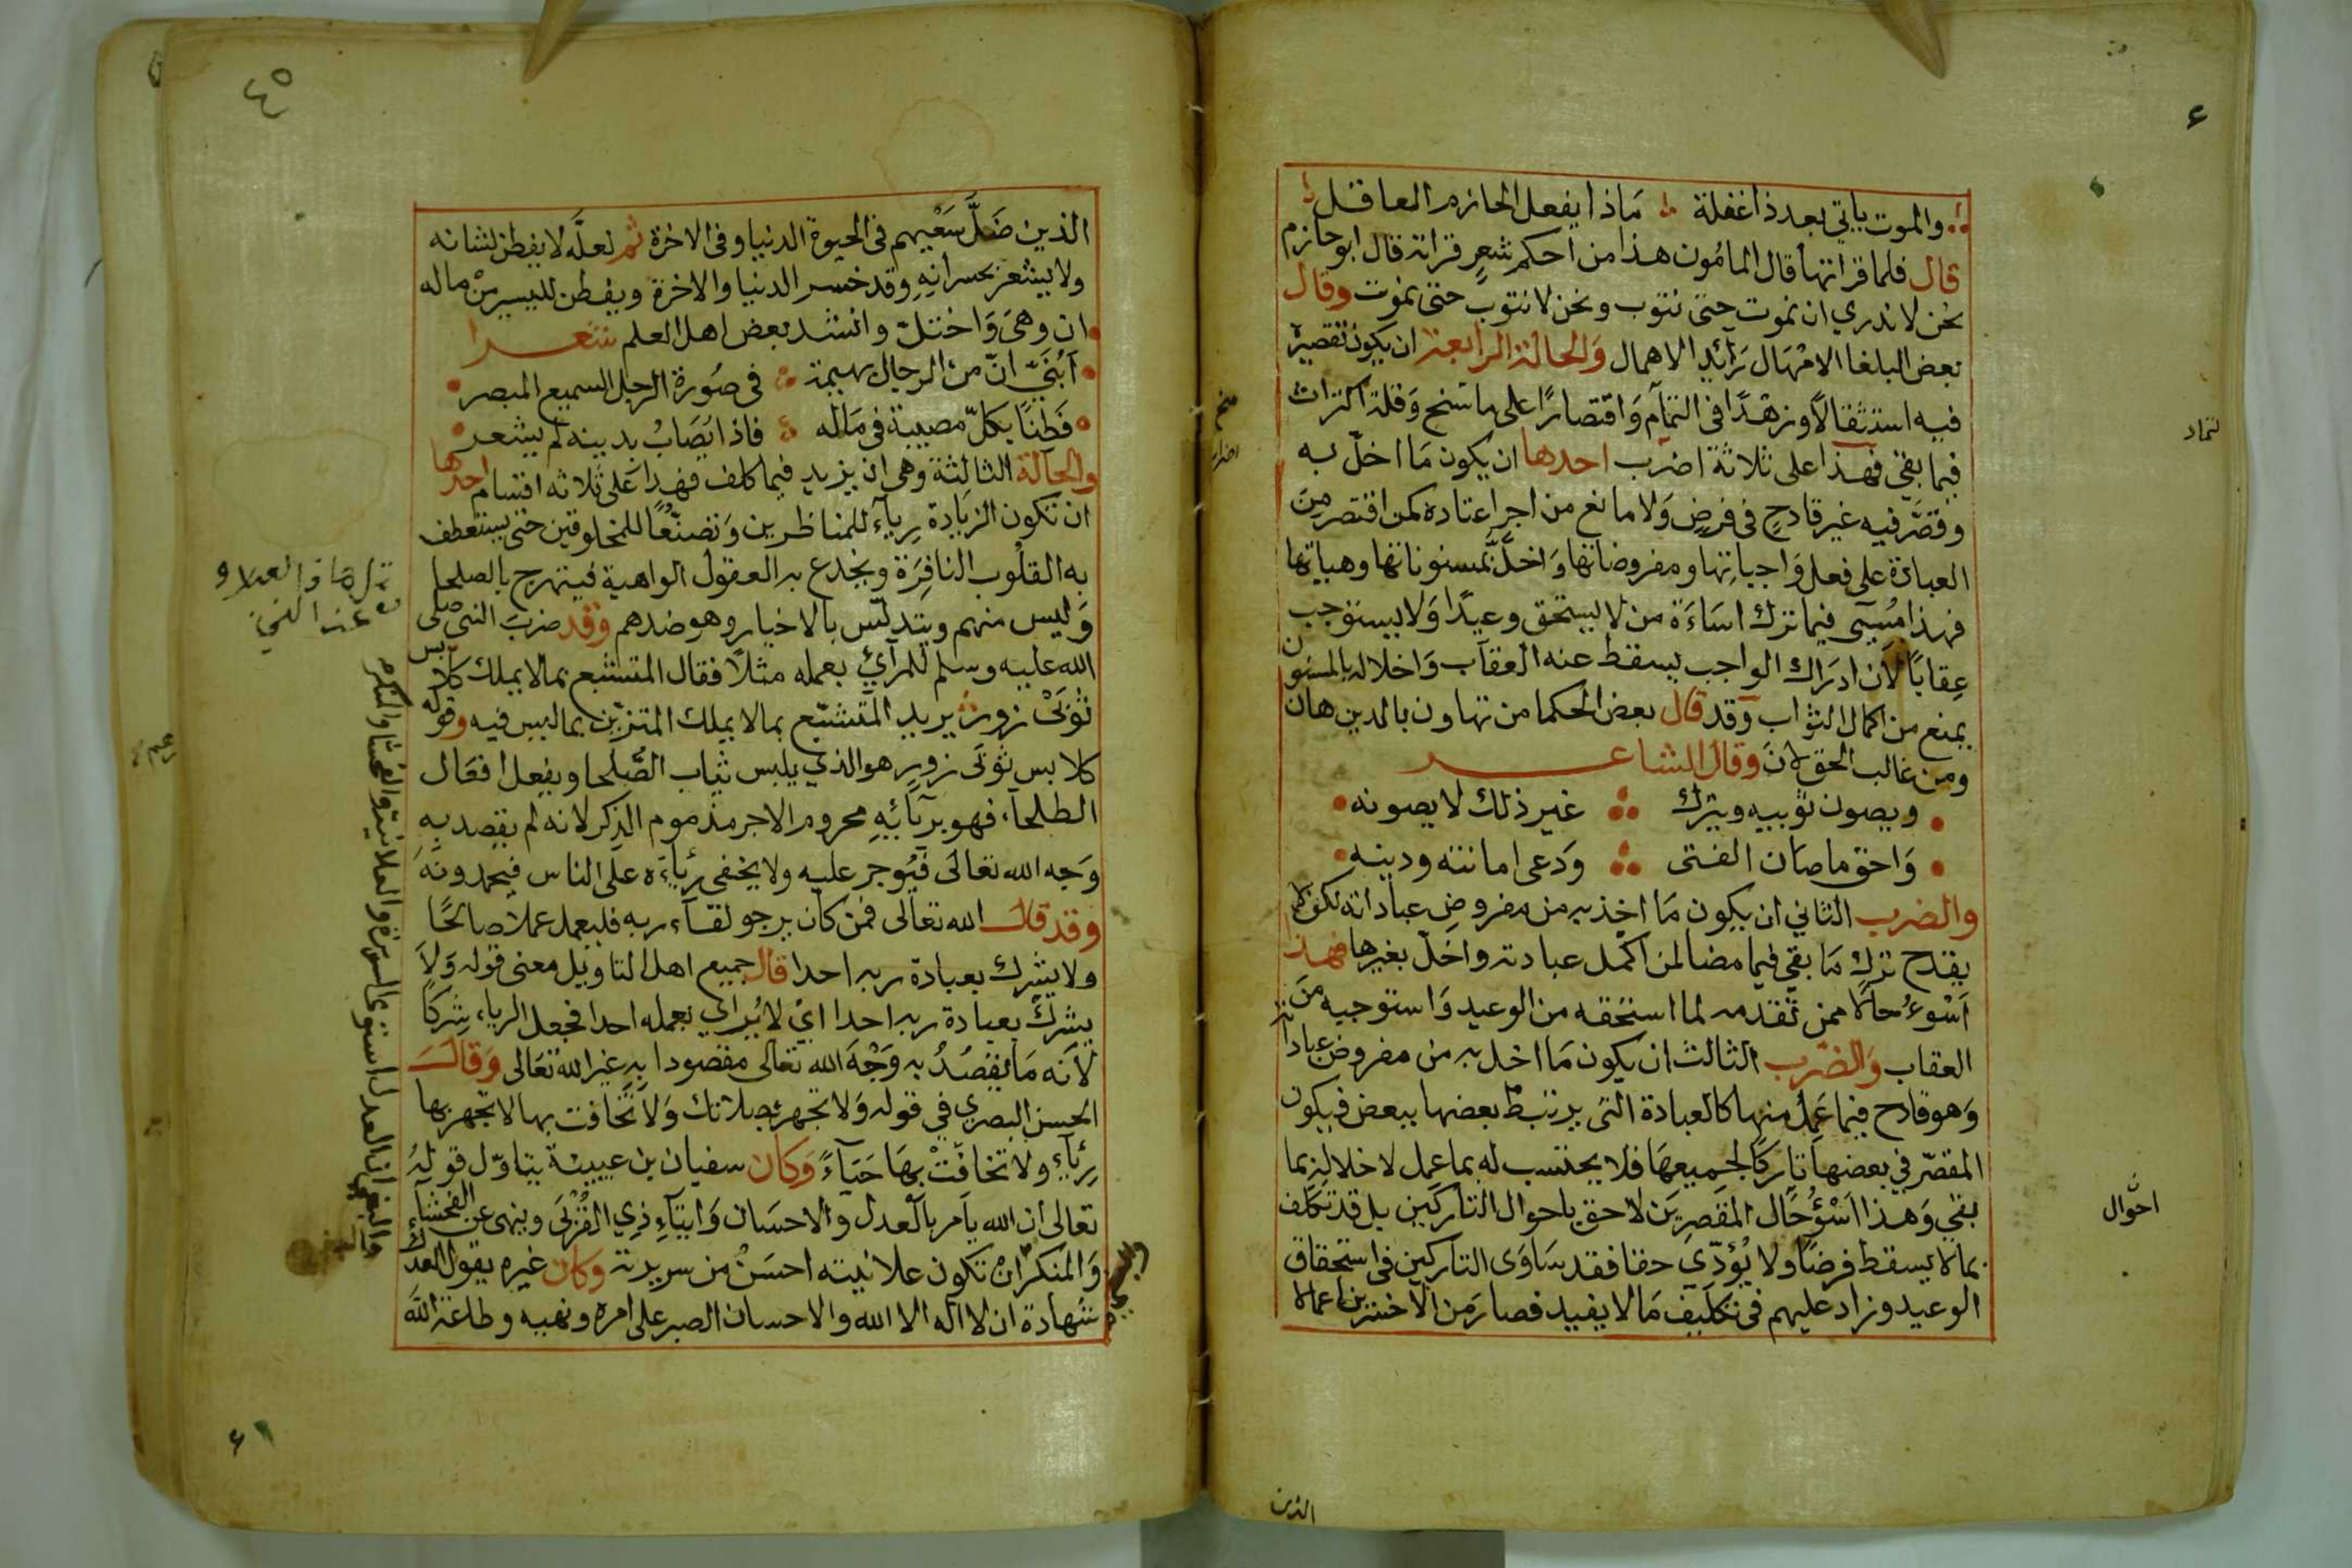 والموت ياتي بعد ذا غفلة ماذا يفعل الحازم العاقل
قال فلما قراتها قال المامون هذا من احكم شعر قراته قال ابو حازم
نحن لا ندري ان نموت حتى نتوب ونحن لا نتوب حتى نموت وقال
بعض البلغا الامهال رائد الاهمال والحالة الرابعة ان يكون تقصيره
فيه استثقالا وزهدا في التمام واقتصارا على ما سنح وقلة اكتراث
فيما بقي فهذا على ثلاثة اضرب احدها ان يكون ما اخل به
وقصر فيه غير قادح في فرض ولا مانع من اجزا عتاده كمن اقتصر من
العبادة على فعل واجباتها ومفروضاتها واخل بمسنوناتها وهياتها
فهذا مسيى فيما ترك اساءة من لا يستحق وعيدا ولا يستوجب
عقابا لان ادراك الواجب يسقط عنه العقاب واخلاله بالمسنون
يمنع من اكمال الثواب وقد قال بعض الحكما من تهاون بالدين هان
ومن غالب الحق لان وقال الشاعر
ويصون ثوبيه ويترك غير ذلك لا يصونه
واحق ما صان الفتى ودعى امانته ودينه
والضرب الثاني ان يكون ما اخذ به من مفروض عباداته لكن لا
يقدح ترك ما بقي فيما مضا لمن اكمل عبادته واخل بغيرها فهذا
اسوء حالا ممن تقدمه لما استحقه من الوعيد واستوجبه من
العقاب والضرب الثالث ان يكون ما اخل به من مفروض عباداته
وهو قادح فيما عمل منها كالعبادة التي يرتبط بعضها ببعض فيكون
المقصر في بعضها تاركا لجميعها فلا يحتسب له بما عمل لاخلاله بما
بقي وهذا اسؤ حال المقصرين لاحق باحوال التاركين بل قد تكلف
بما لا يسقط فرضا ولا يؤدي حقا فقد ساوى التاركين في استحقاق
الوعيد وزاد عليهم في تكليف ما لا يفيد فصار من الاخسرين اعمالا
احوال
الذين
٤٥
الذين ضل سعيهم في الحيوة الدنيا وفي الاخرة ثم لعله لا يفطن لشانه
ولا يشعر بخسرانه وقد خسر الدنيا والاخرة ويفطن لليسير من ماله
ان وهى واختل وانشد بعض اهل العلم شعرا
ابني ان من الرجال بهيمة في صورة الرجل السميع المبصر
فطنا بكل مصيبة في ماله فاذا يصاب بدينه لم يشعر
والحالة الثالثة وهي ان يزيد فيما كلف فهذا على ثلاثه اقسام احدها
ان تكون الزيادة رياء للمناظرين وتصنعا للمخلوقين حتى يستعطف
به القلوب النافرة ويخدع به العقول الواهية فيتبهرج بالصلحا
وليس منهم ويتدلس بالاخيار وهو ضدهم وقد ضرب النبي صلى
الله عليه وسلم للمرآي بعمله مثلا فقال المتشبع بما لا يملك كلابس
ثوبى زور يريد المتشبع بما لا يملك المتزين بما ليس فيه وقوله
كلابس ثوبى زور هو الذي يلبس ثياب الصلحا ويفعل افعال
الطلحاء فهو بريائه محروم الاجر مذموم الذكر لانه لم يقصد به
وجه الله تعالى فيوجر عليه ولا يخفى رياءه على الناس فيحمدونه
وقد قال الله تعالى فمن كان يرجو لقاء ربه فليعمل عملا صالحا
ولا يشرك بعبادة ربه احدا قال جميع اهل التاويل معنى قوله ولا
يشرك بعبادة ربه احدا اي لا يراي بعمله احدا فجعل الرياء شركا
لانه ما يقصد به وجه الله تعالى مقصودا به غير الله تعالى وقال
الحسن البصري في قوله ولا تجهر بصلاتك ولا تخافت بها لا تجهر بها
رياء ولا تخافت بها حياء وكان سفيان بن عيينة يتاول قوله
تعالى ان الله يامر بالعدل والاحسان وايتاء ذي القربى وينهى عن الفحشاء
والمنكر ان تكون علانيته احسن من سريرته وكان غيره يقول العدل
شهادة ان لا اله الا الله والاحسان الصبر على امره ونهيه وطاعة الله